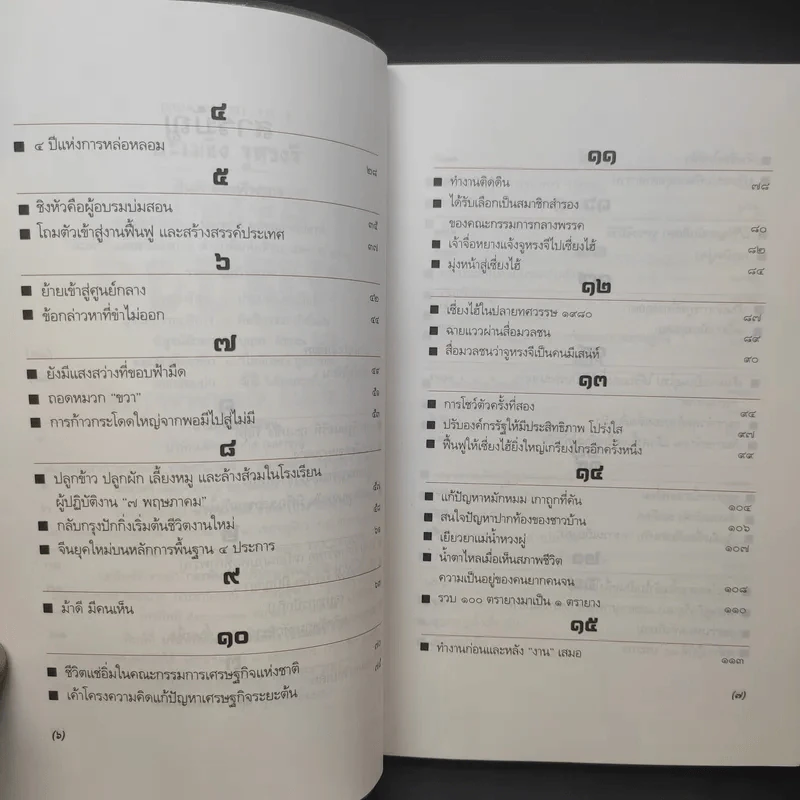 ๔
■ ๔ ปีแห่งการหล่อหลอม ๒๘
๕
■ ชิงหัวคือผู้อบรมบ่มสอน ๓๕
■ โถมตัวเข้าสู่งานฟื้นฟู และสร้างสรรค์ประเทศ ๓๗
๖
■ ย้ายเข้าสู่ศูนย์กลาง ๔๒
■ ข้อกล่าวหาที่ขำไม่ออก ๔๔
๗
■ ยังมีแสงสว่างที่ขอบฟ้ามืด
■ ถอดหมวก "ขวา"
■ การก้าวกระโดดใหญ่จากพอมีไปสู่ไม่มี
๘
■ ปลูกข้าว ปลูกผัก เลี้ยงหมู และล้างส้วมในโรงเรียน
ผู้ปฏิบัติงาน "๗ พฤษภาคม"
■ กลับกรุงปักกิ่งเริ่มต้นชีวิตงานใหม่
■ จีนยุคใหม่บนหลักการพื้นฐาน ๔ ประการ
๙
■ ม้าดี มีคนเห็น
๑๐
■ ชีวิตแช่อิ่มในคณะกรรมการเศรษฐกิจแห่งชาติ
■ เค้าโครงความคิดแก้ปัญหาเศรษฐกิจระยะต้น
(๖)
๑๑
■ ทำงานติดดิน ๗๘
■ ได้รับเลือกเป็นสมาชิกสำรอง
ของคณะกรรมการกลางพรรค ๘๐
■ เจ้าจื่อหยางแจ้งจูหรงจีไปเซี่ยงไฮ้ ๘๒
■ มุ่งหน้าสู่เซี่ยงไฮ้ ๘๔
๑๒
■ เซี่ยงไฮ้ในปลายทศวรรษ ๑๙๘๐ ๘๗
■ ฉายแววผ่านสื่อมวลชน ๘๙
■ สื่อมวลชนว่าจูหรงจีเป็นคนมีเสน่ห์ ๙๐
๑๓
■ การโชว์ตัวครั้งที่สอง ๙๔
■ ปรับองค์กรรัฐให้มีประสิทธิภาพ โปร่งใส ๙๗
■ ฟื้นฟูให้เซี่ยงไฮ้ยิ่งใหญ่เกรียงไกรอีกครั้งหนึ่ง ๙๙
๑๔
■ แก้ปัญหาหมักหมม เกาถูกที่คัน ๑๐๔
■ สนใจปัญหาปากท้องของชาวบ้าน ๑๐๖
■ เยียวยาแม่น้ำหวงผู่ ๑๐๗
■ น้ำตาไหลเมื่อเห็นสภาพชีวิต
ความเป็นอยู่ของคนยากคนจน ๑๐๘
■ รวบ ๑๐๐ ตรายางมาเป็น ๑ ตรายาง ๑๑๐
๑๕
■ ทำงานก่อนและหลัง "งาน" เสมอ ๑๑๓
(๗)